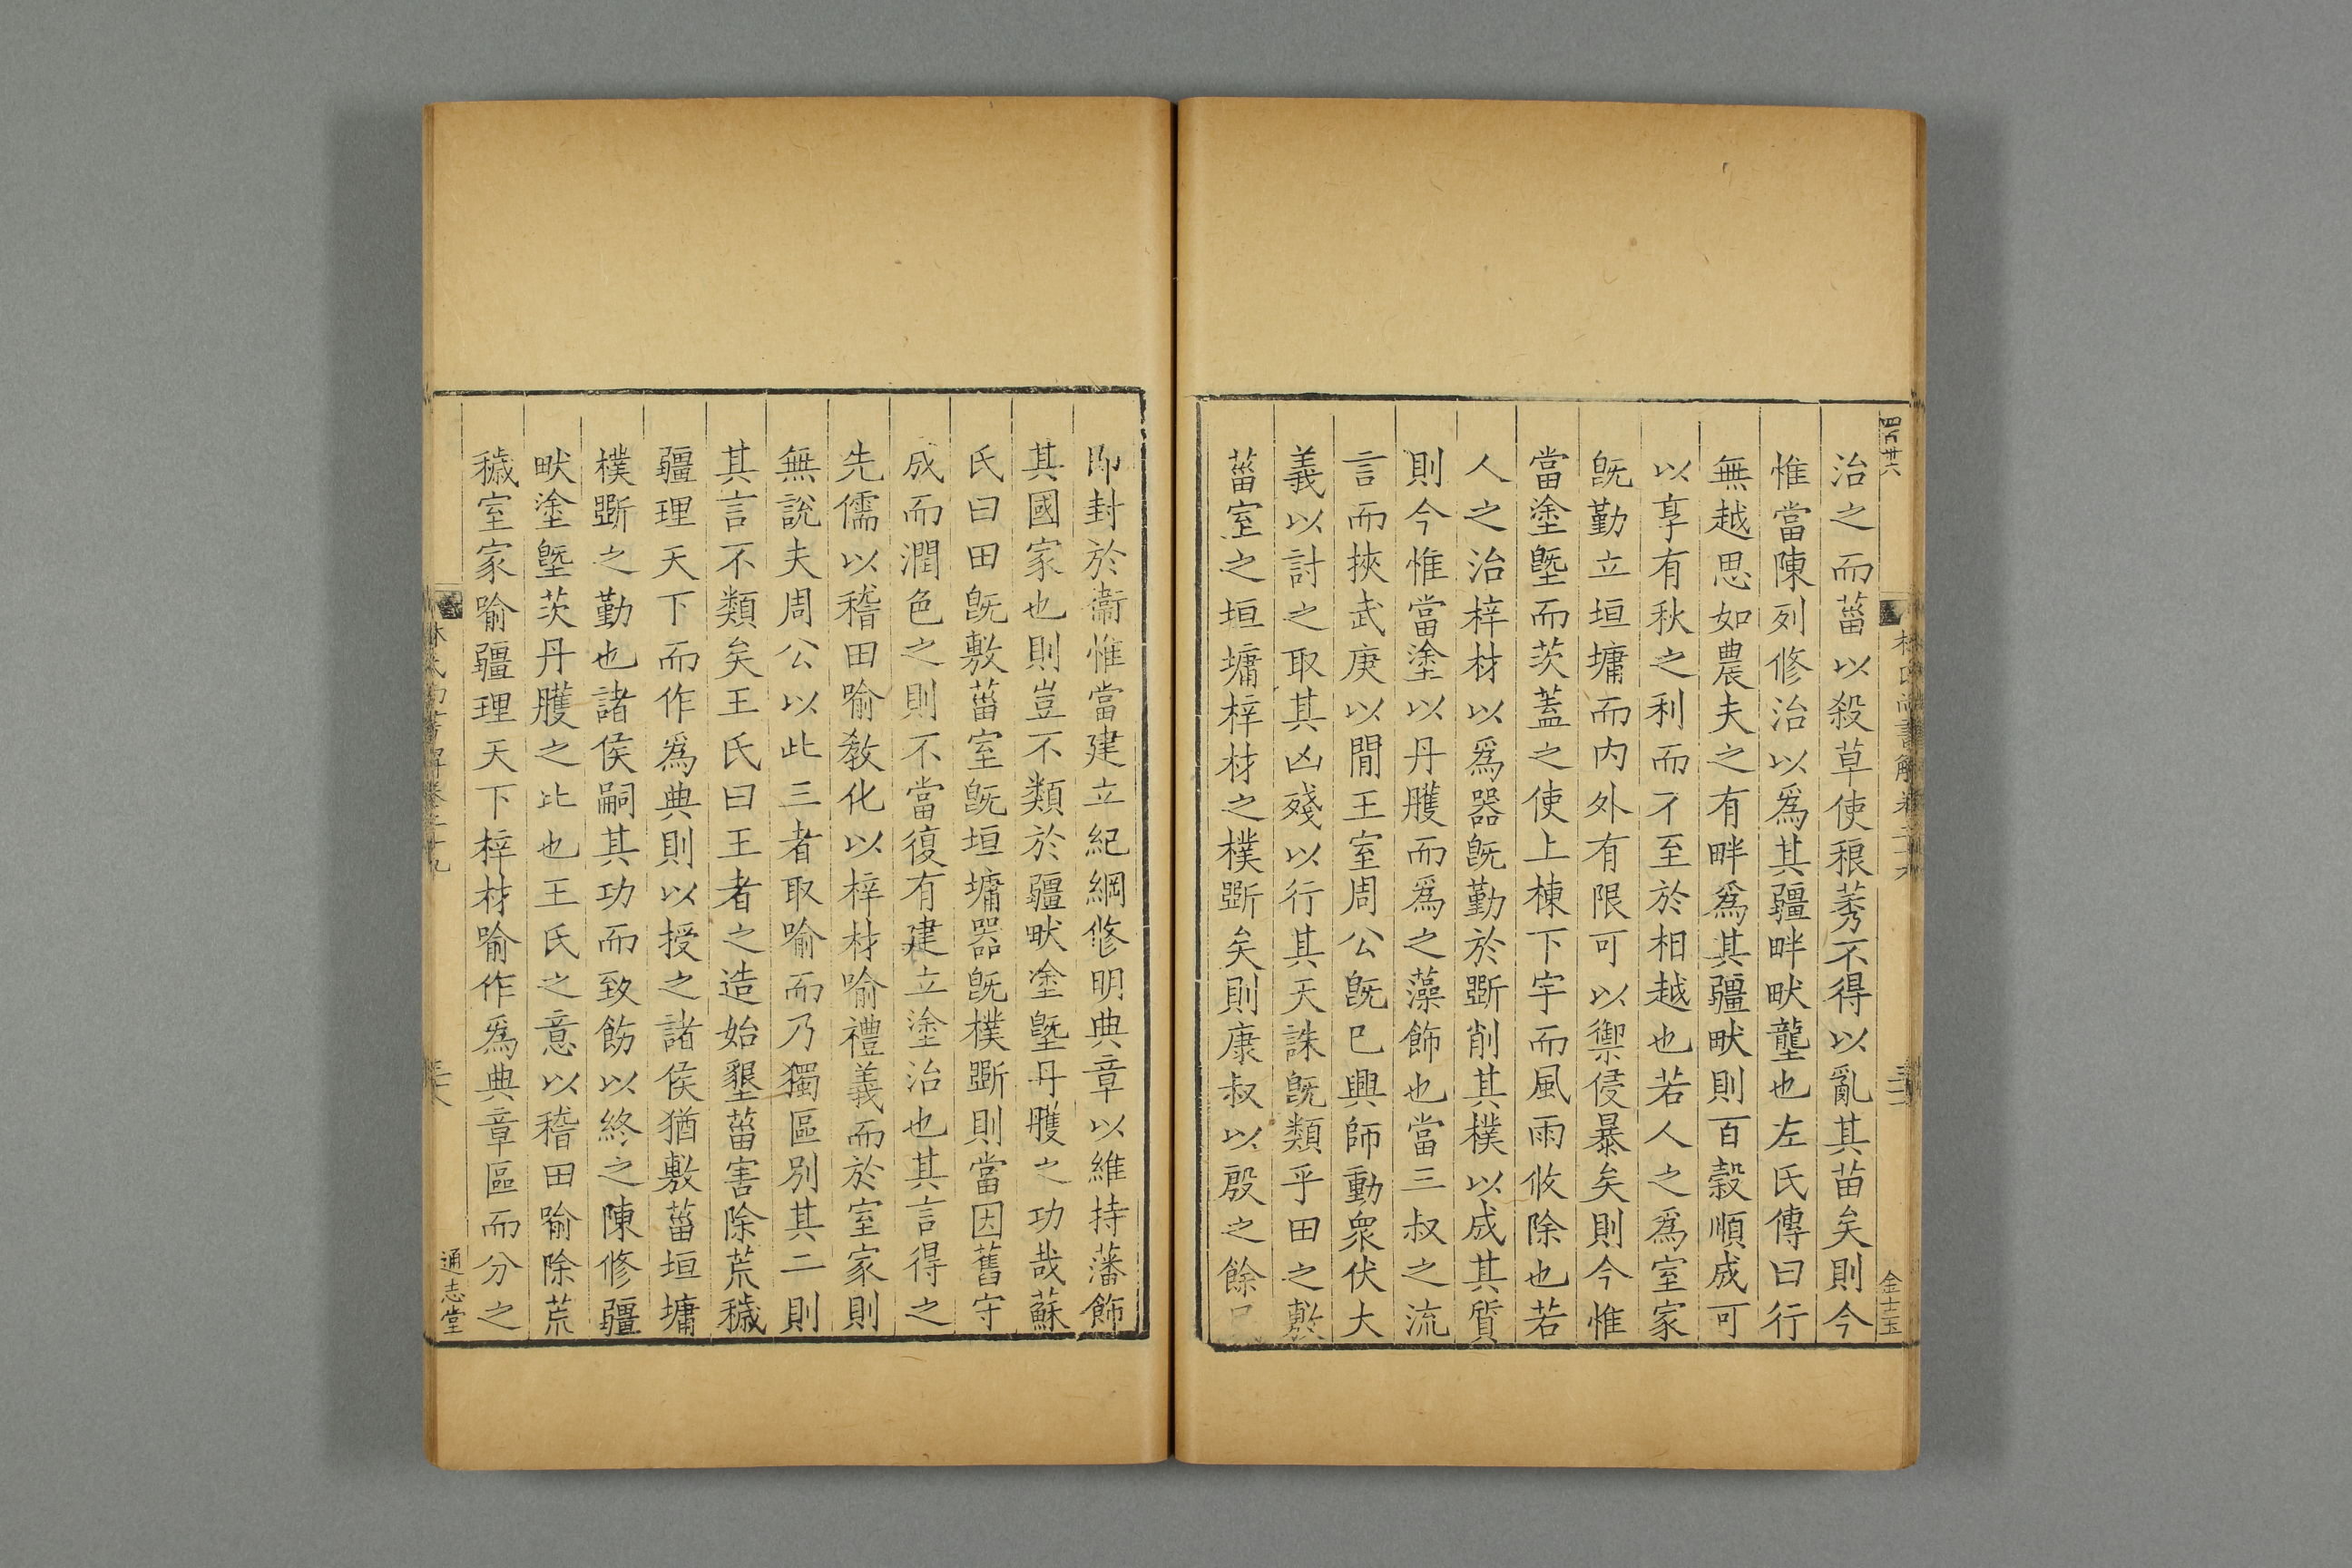 治之而菑以殺草使稂莠不得以亂其苗矣則今
惟當陳列修治以爲其疆畔畎壟也左氏傳曰行
無越思如農夫之有畔爲其疆畎則百穀順成可
以享有秋之利而不至於相越也若人之爲室家
旣勤立垣墉而内外有限可以禦侵暴矣則今惟
當塗墍而茨蓋之使上棟下宇而風雨攸除也若
人之治梓材以爲器旣勤於斵削其樸以成其質
則今惟當塗以丹雘而爲之藻飾也當三叔之流
言而挾武庚以閒王室周公旣巳興師動衆伏大
義以討之取其凶殘以行其天誅旣類乎田之敷
菑室之垣墉梓材之樸斵矣則康叔以殷之餘
卽封於衞惟當建立紀綱修明典章以維持藩飾
其國家也則豈不類於疆畎塗墍丹雘之功哉蘇
氏曰田旣敷菑室旣垣墉器旣樸斵則當因舊守
成而潤色之則不當復有建立塗治也其言得之
先儒以稽田喻敎化以梓材喻禮義而於室家則
無說夫周公以此三者取喻而乃獨區別其二則
其言不類矣王氏曰王者之造始墾菑害除荒穢
疆理天下而作爲典則以授之諸侯猶敷菑垣墉
樸斵之勤也諸侯嗣其功而致飭以終之陳修疆
畎塗墍茨丹雘之比也王氏之意以稽田喻除荒
穢室家喻疆理天下梓材喻作爲典章區而分之
通志堂